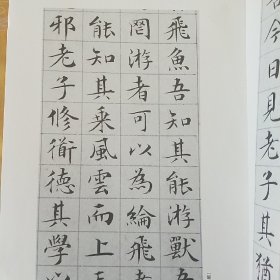 今日見老子其猶
飛魚吾知其能游獸吾
罔游者可以為綸飛者
能知其乘風雲而上天
邪老子修衟德其學以